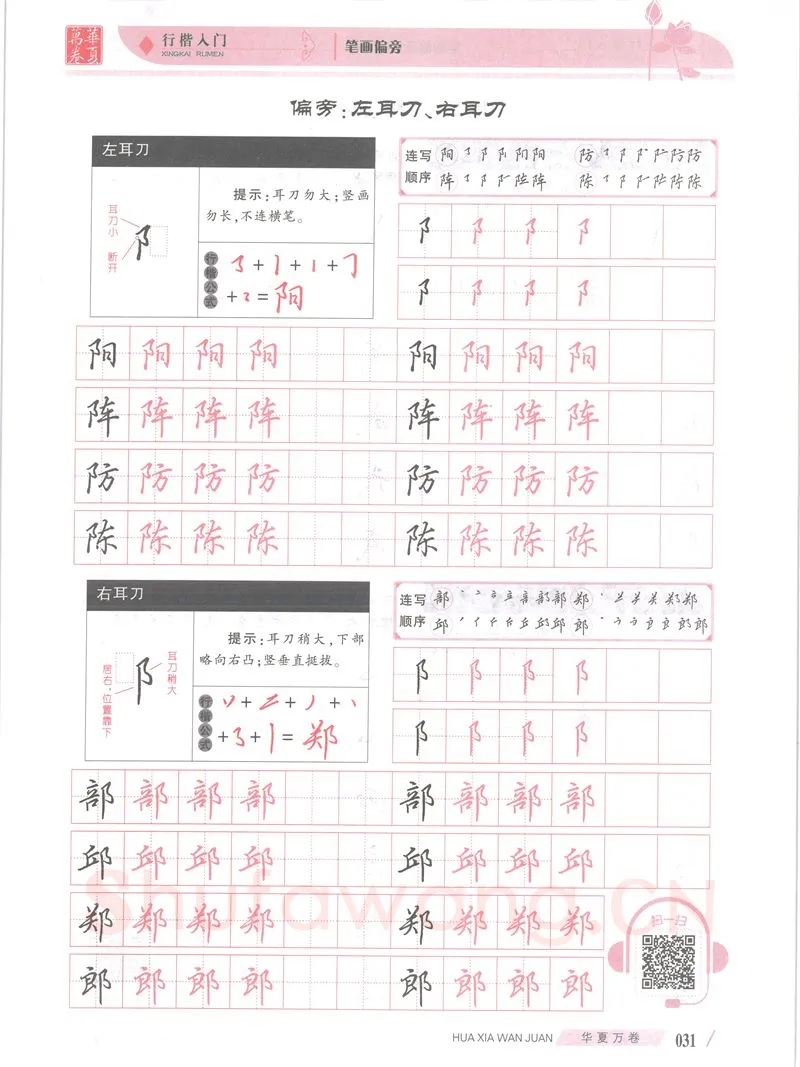 華夏萬卷
行楷入门
XINGKAI RUMEN
笔画偏旁
偏旁:左耳刀、右耳刀
左耳刀
提示:耳刀勿大;竖画
勿长,不连横笔。
耳刀小 断开
阝
行楷公式
阳
连写 阳 阳 防 防
顺序 阵 阵 陈 陈
阝 阝 阝 阝
阝 阝 阝 阝
阳 阳 阳 阳 阳 阳 阳 阳
阵 阵 阵 阵 阵 阵 阵 阵
防 防 防 防 防 防 防 防
陈 陈 陈 陈 陈 陈 陈 陈
右耳刀
提示:耳刀稍大,下部
略向右凸;竖垂直挺拔。
居右,位置靠下
阝
耳刀稍大
行楷公式
郑
连写 部 部 郑 郑
顺序 邱 邱 郎 郎
阝 阝 阝 阝
阝 阝 阝 阝
部 部 部 部 部 部 部 部
邱 邱 邱 邱 邱 邱 邱 邱
郑 郑 郑 郑 郑 郑 郑 郑
郎 郎 郎 郎 郎 郎 郎 郎
Shufawang.CN
扫一扫
HUA XIA WAN JUAN 华夏万卷 031